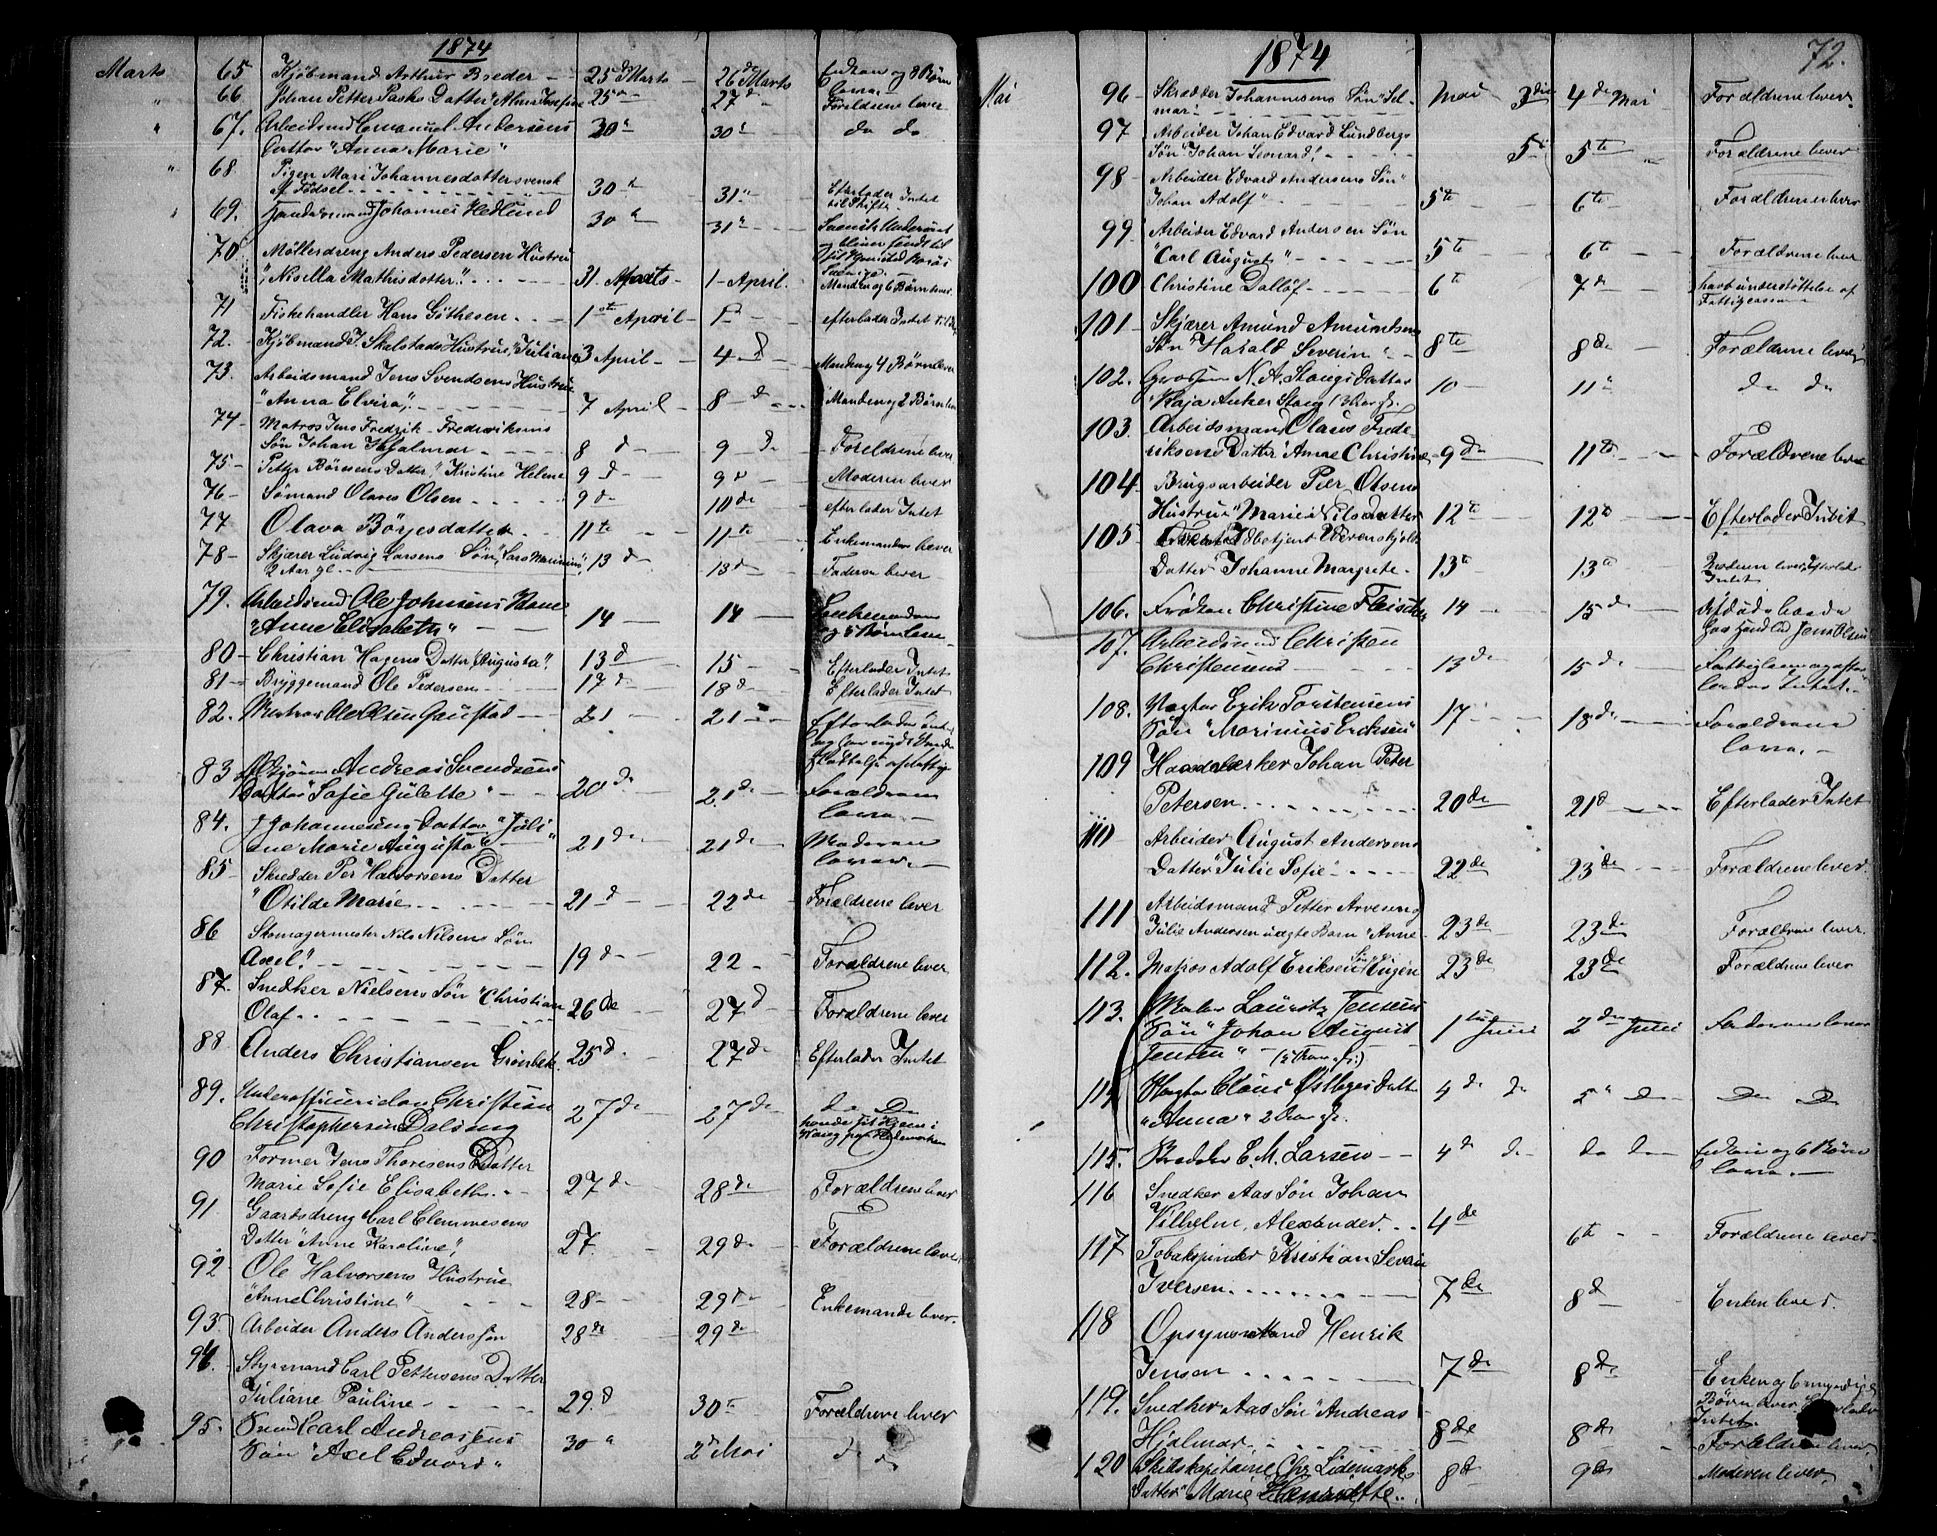 1874
Marts 65 Kjøbmand Arthur Breder 25 d Marts 26 d Marts Enken og 8 Børn
leve.
" 66 Johan Petter Paske Datter "Alma Josefine 25 27 d Forældrene lever
" 67. Arbeidsmd Emanuel Andersens 30 30 do do
Datter "Anna Marie"
" 68. Pigen Mari Johannesdatter svensk
af Fødsel 30 31 Efterlader Intet
til Skifte
" 69. Johannes Hedlund 30 31 Svensk
70. Møllerdreng Anders Pedersen Hustru
"Nisella Mathisdotter". 31 Marts 1 April. Manden og 6 Børn lever.
71 Fiskehandler Hans Gøthesen 1ste April efterlader Intet
72. Kjøbmand J. Skalstads Hustrue, "Juliane 3 April 4 d Manden og 4 Børn lever
73. Arbeidsmand Jens Svendsens Hustrue
"Anna Elvira", 7 April 8 d Manden og 2 Børn lever
74 Matros Jens Fredrik Frederiksens
Søn Johan Hjalmar 8 d 9 d Forældrene lever
75 Petter Børresens Datter "Kristine Helene 9 d 9 d Moderen lever
76 Sømand Olaves Olsen 9 d 10 de efterlader Intet
77 Olava Børjesdatter 11 te 11 te Enkemanden lever
78 Skjærer Ludvig Larsens Søn, "Lars Marinius", 13 d 13 d Faderen lever
2 Aar gl.
79. Arbeidsmd Ole Johnsens Kone
"Anne Elisabeth" 14 14 Enkemanden
og 5 Børn leve
80 Christian Hagens Datter "Augusta". 13 d 15 Efterlader Intet
81 Bryggemand Ole Pedersen 17 d 18 d Efterlader Intet
82. Matros Ole Olsen Gaustad 21 21 Efterlader Intet
83 Andreas Svendsens
Datter "Sofie Gulette" 20 d 21 d Forældrene
leve.
84. J Johannesens Datter "Juli-
ane Marie Augusta" 21 d 21 d Moderen
lever.
85 Skredder Per Halvorsens Datter
"Otilde Marie 21 d 22 de Forældrene lever
86 Skomagermester Nils Nilsens Søn
Axel" 19 d 22 Forældrene lever
87. Snedker Nielsens Søn "Christian
Olaf 26 de 27 d Forældrene lever
88 Anders Christiansen Grønbek 25 d 27 d Efterlader Intet
89. Underofficer Christian
Christophersen Dalseng 27 d 27 d do do
90 Former Jens Thoresens Datter
Marie Sofie Elisabeth 27 d 28 de Forældrene lever
91 Gaardsdreng Carl Clemmesens
Datter "Anne Karoline", 27. 29 d Forældrene lever
92 Ole Halvorsens Hustrue
"Anne Christine" 28 29 d Enkemande lever.
93. Arbeider Anders Anderssøn 28 de 29 de
94. Styrmand Carl Pettersens Datter
Juliane Pauline 29 d 30 te Forældrene lever
95. Carl Andreassens
Søn "Axel Edvard" 30 2 d Mai d do
1874 72.
Mai 96 Skrædder Johannesens Søn "Sel- Mai 3 die 4 de Mai Forældrene lever
mar
97 Arbeider Johan Edvard Lundbergs
Søn "Johan Leonard". 5 te 5 te Forældrene lever
98 Arbeider Edvard Andersens Søn"
Johan Adolf" 5 te 6 te Forældrene lever
99 Arbeider Edvard Andersen Søn
"Carl August" 5 te 6 te Forældrene lever
100 Christine Dalløf 6 te 7 de havt understøttelse af
Fattigcassen
101 Skjærer Amund Amundsens
Søn "Harald Severin" 8 te 8 de Forældrene lever
102. N. A. Stangs Datter 10 11 do do
"Kaja Anker Stang 13 Aar gl.
103. Arbeidsmand Olaus Frede-
riksens Datter "Anne Christine 9 de 11 te Forældrene lever
104. Brugsarbeider Peer Olsens
Hustrue "Marie Nilsdatter 12 te 12 te Efterlader Intet
105
Datter "Johanne Margrete. 13 te 13 te Moderen lever, Efterlader
Intet
106. Frøken Christine Fleischer 14 15 de
107. Arbeidsmand Christen
Christensen 13 de 15 de
108. Vagter Erik Torstensens
Søn "Marinius Eriksen" 17 18 de Forældrene
leve.
109 Haandværker Johan Peter
Petersen 20 de 21 d Efterlader Intet
110 Arbeider August Andersens
Datter "Julie Sofie 22 de 23 de Forældrene lever.
111 Arbeidsmand Petter Arvesen og
Julie Andersen uægte Barn "Anne 23 de 23 de Forældrene lever.
112. Matros Adolf Eriksen Søn "Eugen 23 de 23 de Forældrene lever
113. Maler Lauritz Jensens
Søn "Johan August
Jensen" 1 ste Juni 2 den Juni Faderen lever
114 Vagter Claus Østbyes Datter 4 de do 5 do do do
"Anna" 2 Aar gl.
115. C. M. Larsen 4 de do do do Enken og 6 Børn
leve.
116 Snedker Aas Søn Johan
Vilhelm, Alexander. 4 de 6 te Forældrene lever
117 Tobakspinder Kristian Severin
Iversen 7 de 8 d Enken lever.
118 Opsynsmand Henrik
Jensen 7 de 8 de Enken og
Børn lever
Intet
119. Snedker Aas Søn "Andreas
Hjalmar 8 de 8 de Forældrene lever
120 Skibskapitaine Chr. Lidemarks
Datter "Marie Henriette. 8 d 9 de Moderen lever.